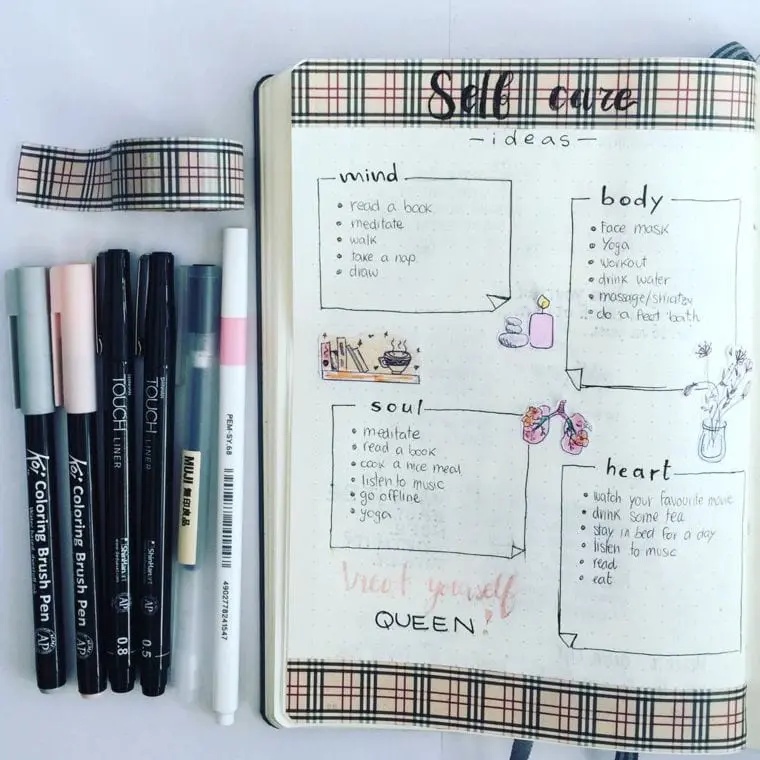 Self care
- ideas -
mind
read a book
meditate
walk
take a nap
draw
body
Face mask
Yoga
workout
drink water
massage/shiatzu
do a feet bath
soul
meditate
read a book
cook a nice meal
listen to music
go offline
yoga
heart
watch your favourite movie
drink some tea
stay in bed for a day
listen to music
read
eat
Treat yourself
QUEEN!
Koi Coloring Brush Pen
AP
Koi Coloring Brush Pen
AP
TOUCH LINER
ShinHanart
AP
0.8
SHINHAN TOUCH LINER
ShinHanart
AP
0.5
MUJI 無印良品
PEM-SY.68
4902778241547